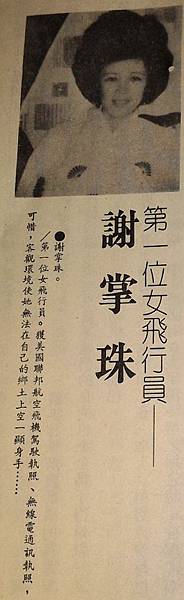 第一位女飛行員——
謝掌珠
●謝掌珠。
／第一位女飛行員。獲美國聯邦航空飛機駕駛執照、無線電通訊執照，
可惜，客觀環境使她無法在自己的鄉土上空一顯身手……